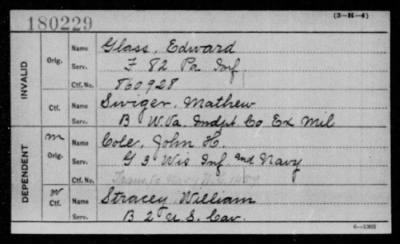 180229
(3-H-4)
INVALID
Orig.
Name Glass, Edward
Serv. F 82 Pa Inf
Ctf. No. 860928
Ctf.
Name Swiger, Mathew
Serv. B W. Va. Indpt Co Ex Mil
DEPENDENT
m
Orig.
Name Cole, John H.
Serv. G 3 Wis Inf and Navy
Ctf. No.
W
Ctf.
Name Stracey, William
Serv. B 2 U S. Cav.